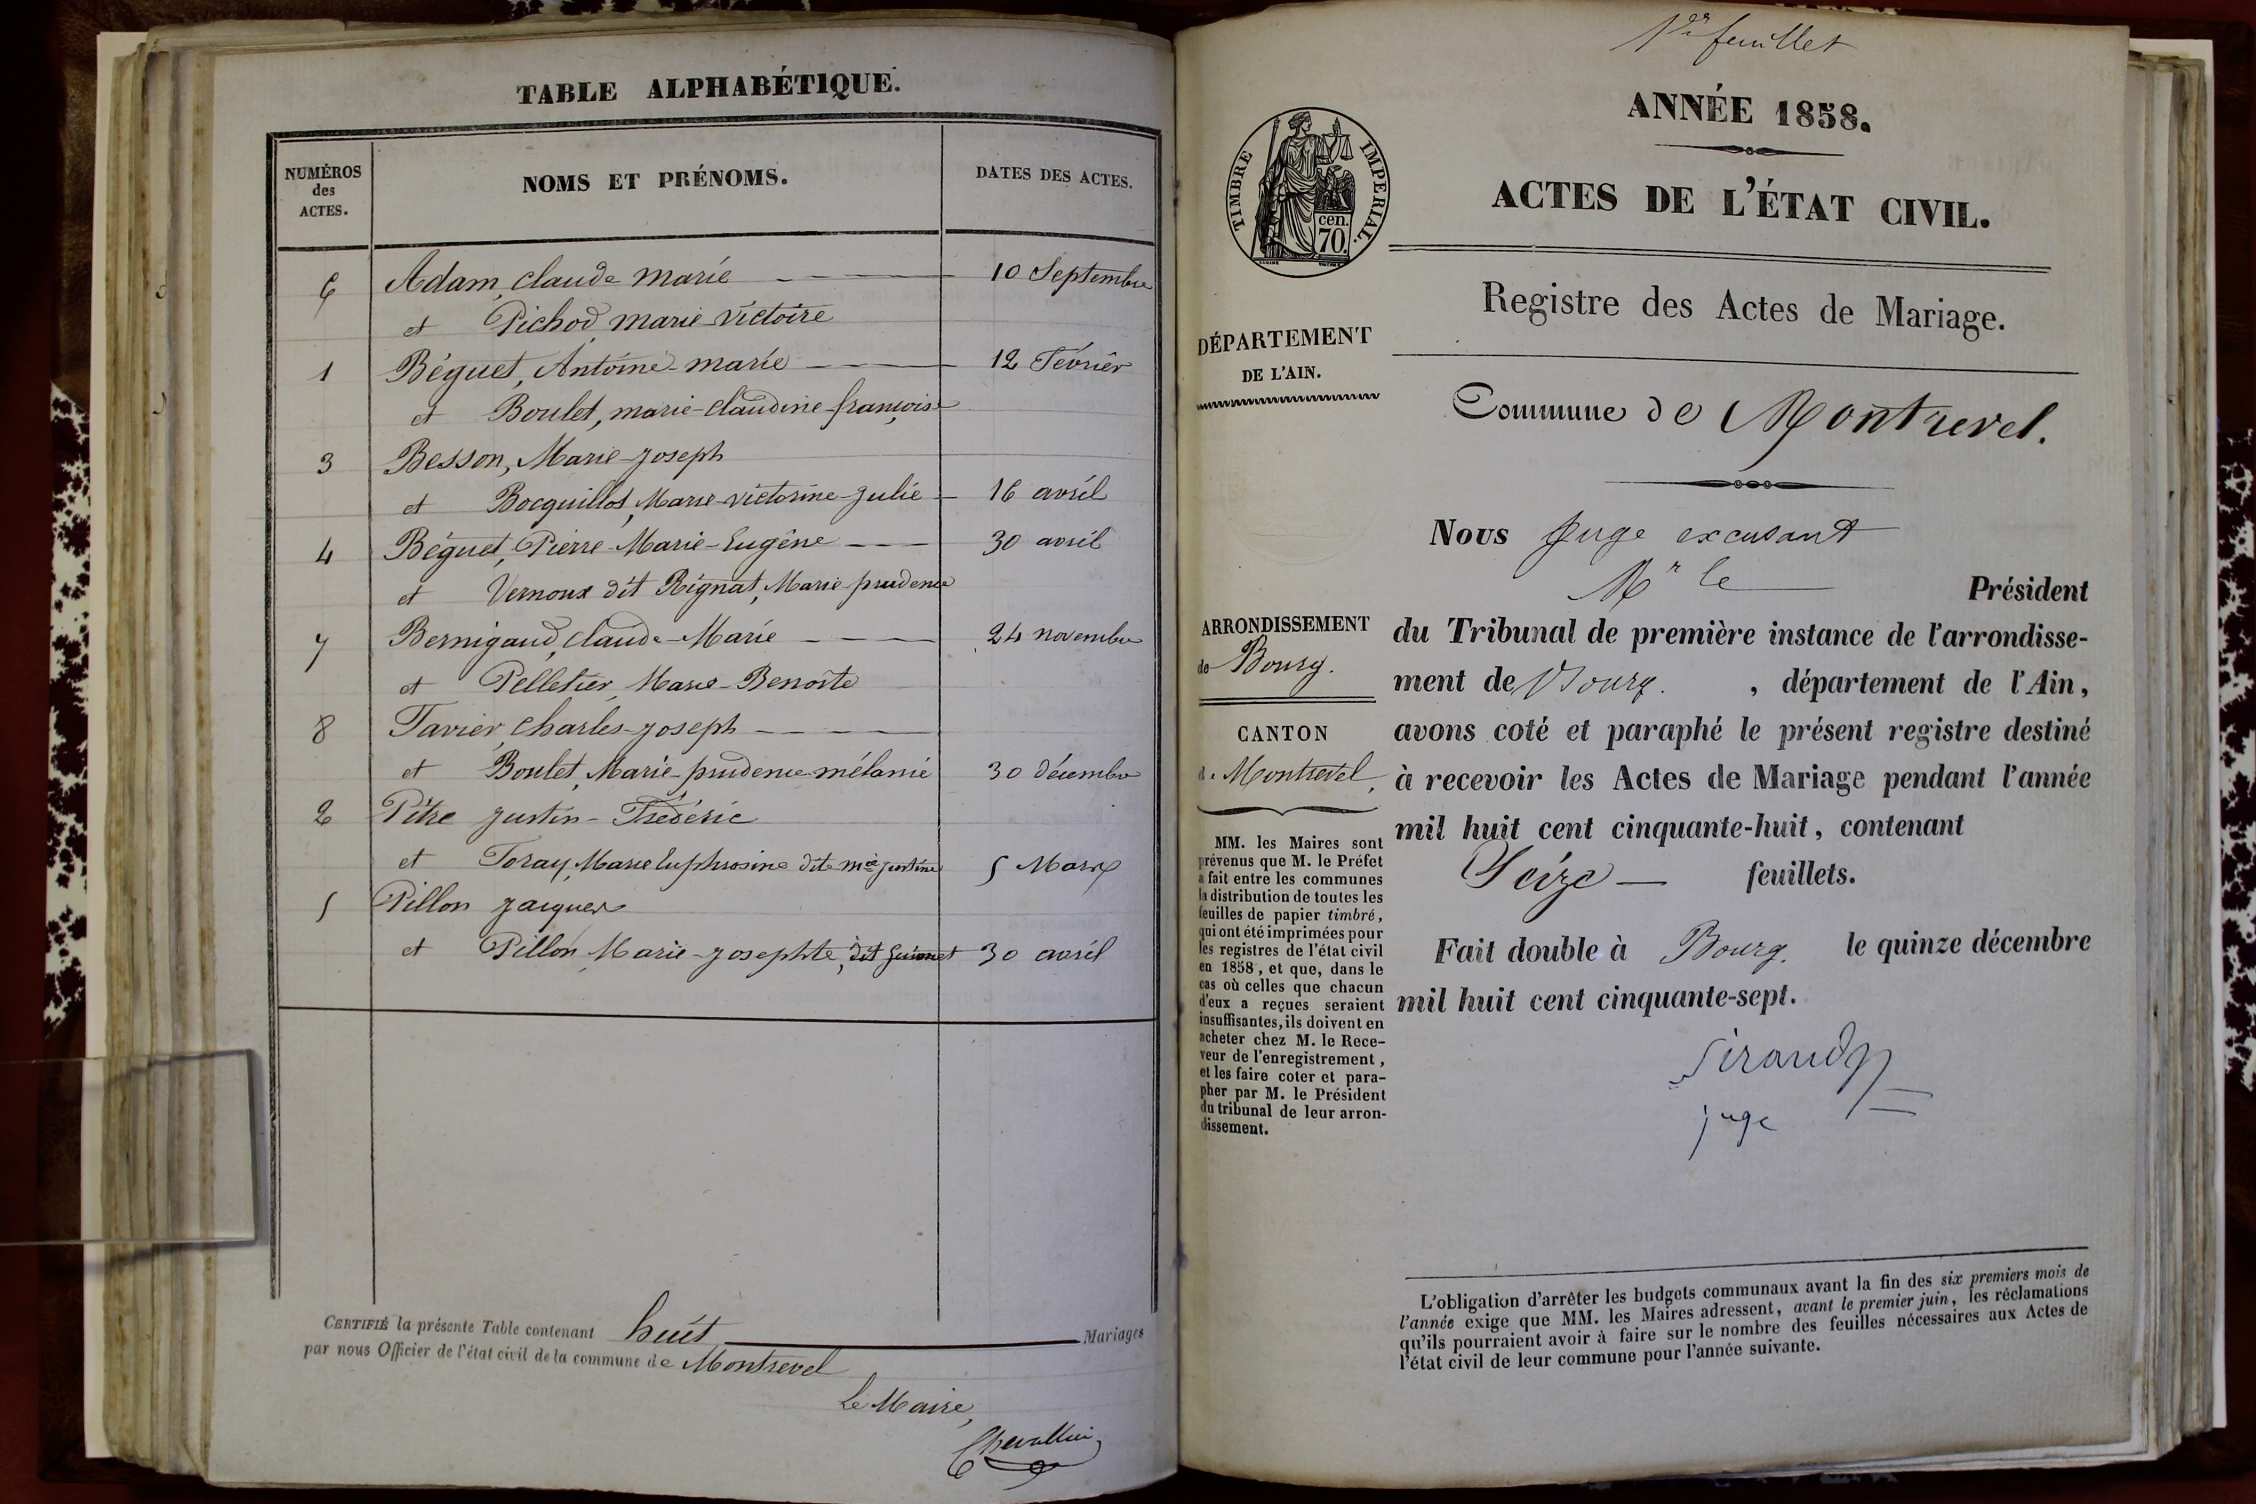 TABLE ALPHABÉTIQUE.
NUMÉROS
des
ACTES.
NOMS ET PRÉNOMS.
DATES DES ACTES.
6 Adam, Claude Marie 10 Septembre
et Pichod marie victoire
1 Béguet, Antoine-marie 12 Février
et Boulet, marie-Claudine-françoise
3 Besson, Marie-joseph
et Bocquillot, Marie-victorine-julie 16 avril
4 Béguet, Pierre-Marie-Eugène 30 avril
et Vernoux dit Rignat, Marie-prudence
7 Bernigaud, Claude-Marie 24 novembre
et Pelletier, Marie-Benoîte
8 Tavier, Charles-joseph
et Boulet, Marie-prudence-mélanie 30 décembre
2 Pître justin-Frédéric
et Foray, Marie Euphrosine dite mie justine 5 Mars
5 Pillon jacques
et Pillon Marie-josephte, dit 30 avril
CERTIFIÉ la présente Table contenant huit Mariages
par nous Officier de l'état civil de la commune de Montrevel
Le Maire,
Chevallier
1er feuillet
ANNÉE 1858.
TIMBRE IMPERIAL.
cen.
70.
ACTES DE L'ÉTAT CIVIL.
Registre des Actes de Mariage.
DÉPARTEMENT
DE L'AIN.
Commune de Montrevel.
ARRONDISSEMENT
de Bourg.
CANTON
de Montrevel,
MM. les Maires sont
prévenus que M. le Préfet
a fait entre les communes
la distribution de toutes les
feuilles de papier timbré,
qui ont été imprimées pour
les registres de l'état civil
en 1858, et que, dans le
cas où celles que chacun
d'eux a reçues seraient
insuffisantes, ils doivent en
acheter chez M. le Rece-
veur de l'enregistrement,
et les faire coter et para-
pher par M. le Président
du tribunal de leur arron-
dissement.
Nous Juge excusant
Mr le Président
du Tribunal de première instance de l'arrondisse-
ment de Bourg. , département de l'Ain,
avons coté et paraphé le présent registre destiné
à recevoir les Actes de Mariage pendant l'année
mil huit cent cinquante-huit, contenant
Seize feuillets.
Fait double à Bourg. le quinze décembre
mil huit cent cinquante-sept.
Sirand
juge
L'obligation d'arrêter les budgets communaux avant la fin des six premiers mois de
l'année exige que MM. les Maires adressent, avant le premier juin, les réclamations
qu'ils pourraient avoir à faire sur le nombre des feuilles nécessaires aux Actes de
l'état civil de leur commune pour l'année suivante.